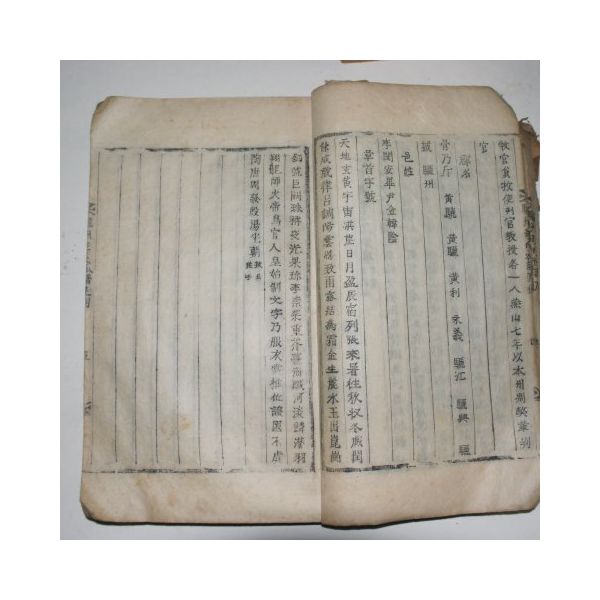 牧官員牧使判官教授各一人燕山七年以本州革判
官
郡名
骨乃斤 黃驍 黃驪 黃利 永義 驪江 驪興 驪
城 驪州
邑姓
李閔安畢尹金韓陰
草首字號
天地玄黃宇宙洪荒日月盈辰宿列張來暑往秋收冬藏閏
餘成歲律呂調陽雲騰致雨露結為霜金生麗水玉出崑崗
釖號巨闕珠稱夜光果珍李柰菜重芥薑海醎河淡鱗潛羽
翔龍師火帝鳥官人皇始制文字乃服衣裳推位讓國不虞
陶唐周發殷湯坐朝